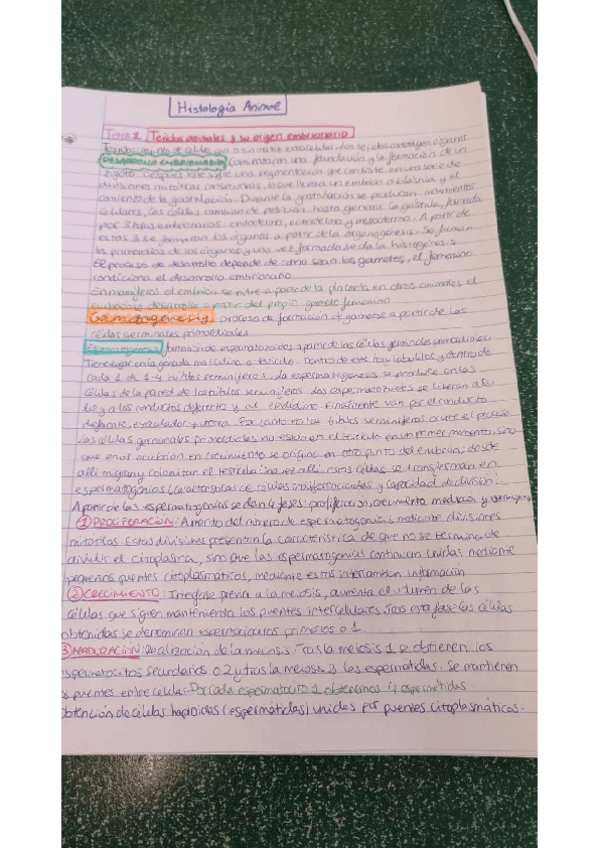 Histología Animal
TEMA 1 Tejidos animales y su origen embrionario
Tejido: conjunto de células con o sin matriz extracelular. Los tejidos constituyen órganos
DESARROLLO EMBRIONARIO: Comienza con una fecundación y la formación de un
zigoto. Después este sufre una segmentación que consiste en una serie de
divisiones mitóticas consecutivas, lo que lleva a un embrión o blástula y el
comienzo de la gastrulación. Durante la gastrulación se producen movimientos
celulares, las células cambian de posición hasta generar la gástrula, formada
por 3 hojas embrionarias: endodermo, ectodermo y mesodermo. A partir de
estas 3 se forman los órganos a partir de la organogénesis. Se forman
los primordios de los órganos y una vez formado se da la histogénesis.
El proceso de desarrollo depende de como sean los gametos, el femenino
condiciona el desarrollo embrionario.
En mamíferos el embrión se nutre a partir de la placenta, en otros animales el
embrión se desarrolla a partir del propio gameto femenino
Gametogénesis: proceso de formación de gametos a partir de las
células germinales primordiales.
Espermatogénesis: formación de espermatozoides a partir de las células germinales primordiales.
Tiene lugar en la gónada masculina o testículo. Dentro de este hay lobulillos y dentro de
cada 1 de 1-4 túbulos seminíferos. La espermatogénesis se produce en las
células de la pared de los túbulos seminíferos. Los espermatozoides se liberan a la
luz y a los conductos deferentes y al epidídimo. Finalmente van por el conducto
deferente, eyaculador y uretra. En los túbulos seminíferos ocurre el proceso
Las células germinales primordiales no están en el testículo en un primer momento, sino
que en el embrión en crecimiento se originan en otro punto del embrión, desde
allí migran y colonizan el testículo. Una vez allí, estas células se transforman en
espermatogonias (características de células indiferenciadas y capacidad de división).
A partir de las espermatogonias se dan 4 fases: proliferación, crecimiento, maduración y
① PROLIFERACIÓN: Aumento del número de espermatogonias mediante divisiones
mitóticas. Estas divisiones presentan la característica de que no se termina de
dividir el citoplasma, sino que las espermatogonias continúan unidas mediante
pequeños puentes citoplasmáticos, mediante estos intercambian información
② CRECIMIENTO: Interfase previa a la meiosis, aumenta el volumen de las
células que siguen manteniendo los puentes intercelulares. Tras esta fase las células
obtenidas se denominan espermatocitos primarios o 1.
3) MADURACIÓN: Realización de la meiosis. Tras la meiosis 1 se obtienen los
espermatocitos secundarios o 2 y tras la meiosis 2 las espermátidas. Se mantienen
puentes entre células. Por cada espermatocito 1 obtenemos 4 espermátidas
obtención de células haploides (espermátidas) unidas por puentes citoplasmáticos.